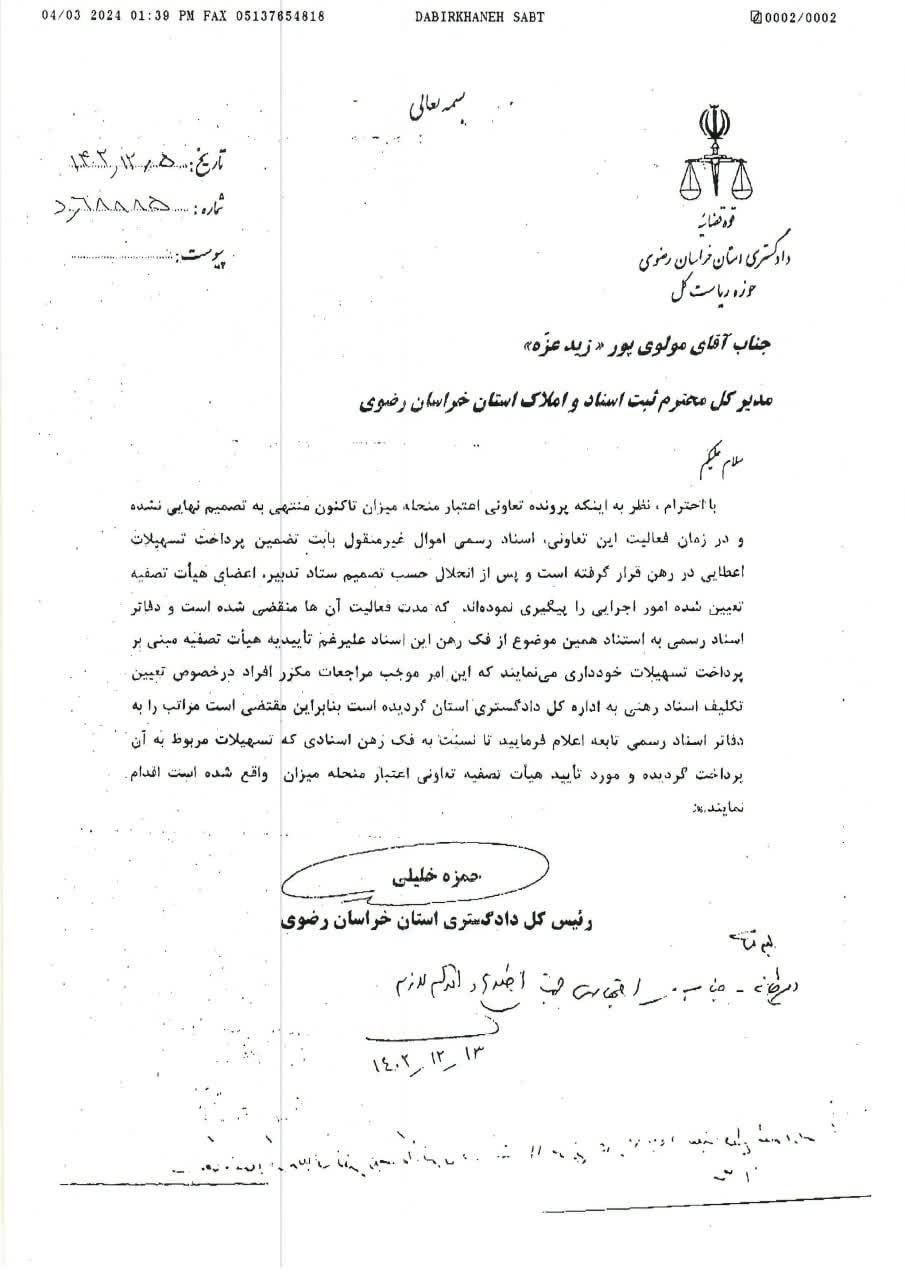 04/03 2024 01:39 PM FAX 05137654818 DABIRKHANEH SABT 0002/0002
بسمه تعالی
قوه قضائیه
دادگستری استان خراسان رضوی
حوزه ریاست کل
تاریخ: ۱۴۰۲/۱۲/۰۵
شماره:
پیوست:
جناب آقای مولوی پور «زید عزّه»
مدیر کل محترم ثبت اسناد و املاک استان خراسان رضوی
سلام علیکم
با احترام ، نظر به اینکه پرونده تعاونی اعتبار منحله میزان تاکنون منتهی به تصمیم نهایی نشده
و در زمان فعالیت این تعاونی، اسناد رسمی اموال غیرمنقول بابت تضمین پرداخت تسهیلات
اعطایی در رهن قرار گرفته است و پس از انحلال حسب تصمیم ستاد تدبیر، اعضای هیأت تصفیه
تعیین شده امور اجرایی را پیگیری نموده‌اند که مدت فعالیت آن ها منقضی شده است و دفاتر
اسناد رسمی به استناد همین موضوع از فک رهن این اسناد علیرغم تأییدیه هیأت تصفیه مبنی بر
پرداخت تسهیلات خودداری می‌نمایند که این امر موجب مراجعات مکرر افراد درخصوص تعیین
تکلیف اسناد رهنی به اداره کل دادگستری استان گردیده است بنابراین مقتضی است مراتب را به
دفاتر اسناد رسمی تابعه اعلام فرمایید تا نسبت به فک رهن اسنادی که تسهیلات مربوط به آن
پرداخت گردیده و مورد تأیید هیأت تصفیه تعاونی اعتبار منحله میزان واقع شده است اقدام
نمایند.
حمزه خلیلی
رئیس کل دادگستری استان خراسان رضوی
۱۴۰۲/۱۲/۱۳